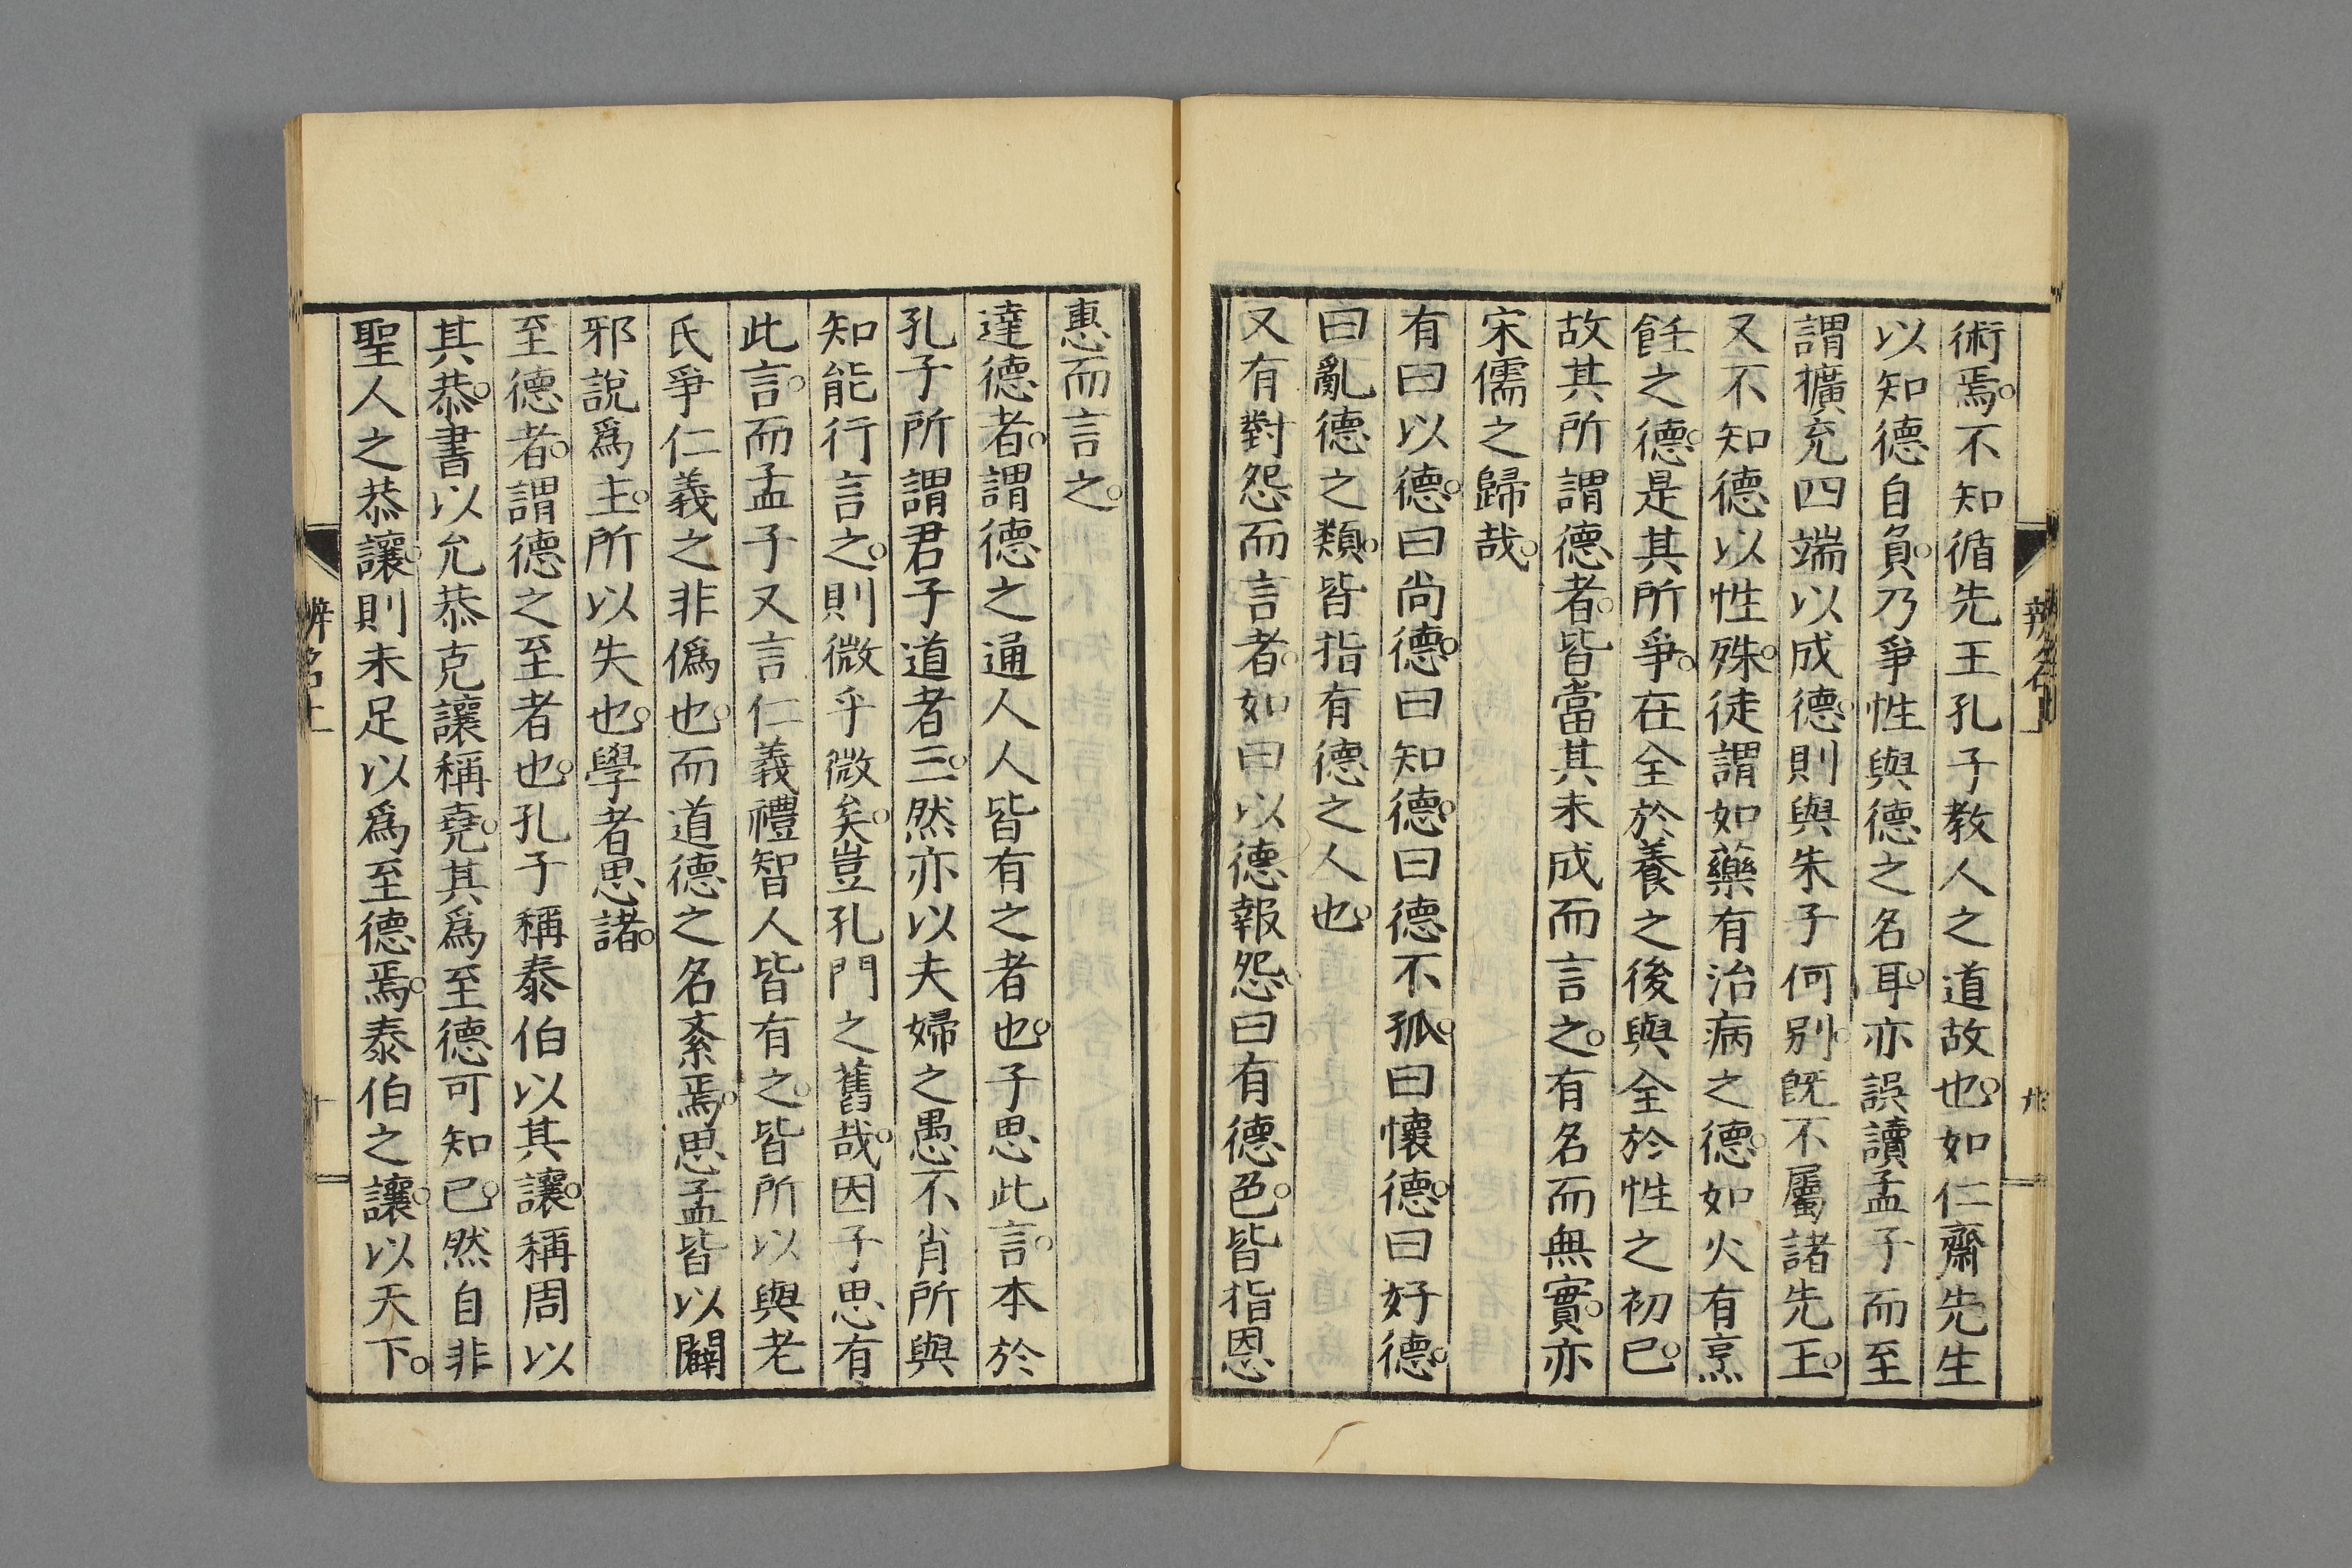 術焉。不知循先王孔子教人之道故也。如仁齋先生
以知德自負。乃爭性與德之名耳。亦誤讀孟子而至
謂擴充四端以成德。則與朱子何別。旣不屬諸先王。
又不知德以性殊。徒謂如藥有治病之德。如火有烹
飪之德。是其所爭。在全於養之後與全於性之初已。
故其所謂德者。皆當其未成而言之。有名而無實。亦
宋儒之歸哉。
有曰以德。曰尚德。曰知德。曰德不孤。曰懷德。曰好德。
曰亂德之類。皆指有德之人也。
又有對怨而言者。如曰以德報怨。曰有德色。皆指恩
惠而言之。
達德者。謂德之通人人皆有之者也。子思此言。本於
孔子所謂君子道者三。然亦以夫婦之愚不肖所與
知能行言之。則微乎微矣。豈孔門之舊哉。因子思有
此言。而孟子又言仁義禮智人皆有之。皆所以與老
氏爭仁義之非僞也。而道德之名紊焉。思孟皆以闢
邪說爲主。所以失也。學者思諸。
至德者。謂德之至者也。孔子稱泰伯以其讓。稱周以
其恭。書以允恭克讓稱堯。其爲至德可知已。然自非
聖人之恭讓。則未足以爲至德焉。泰伯之讓。以天下。
辨名上
十